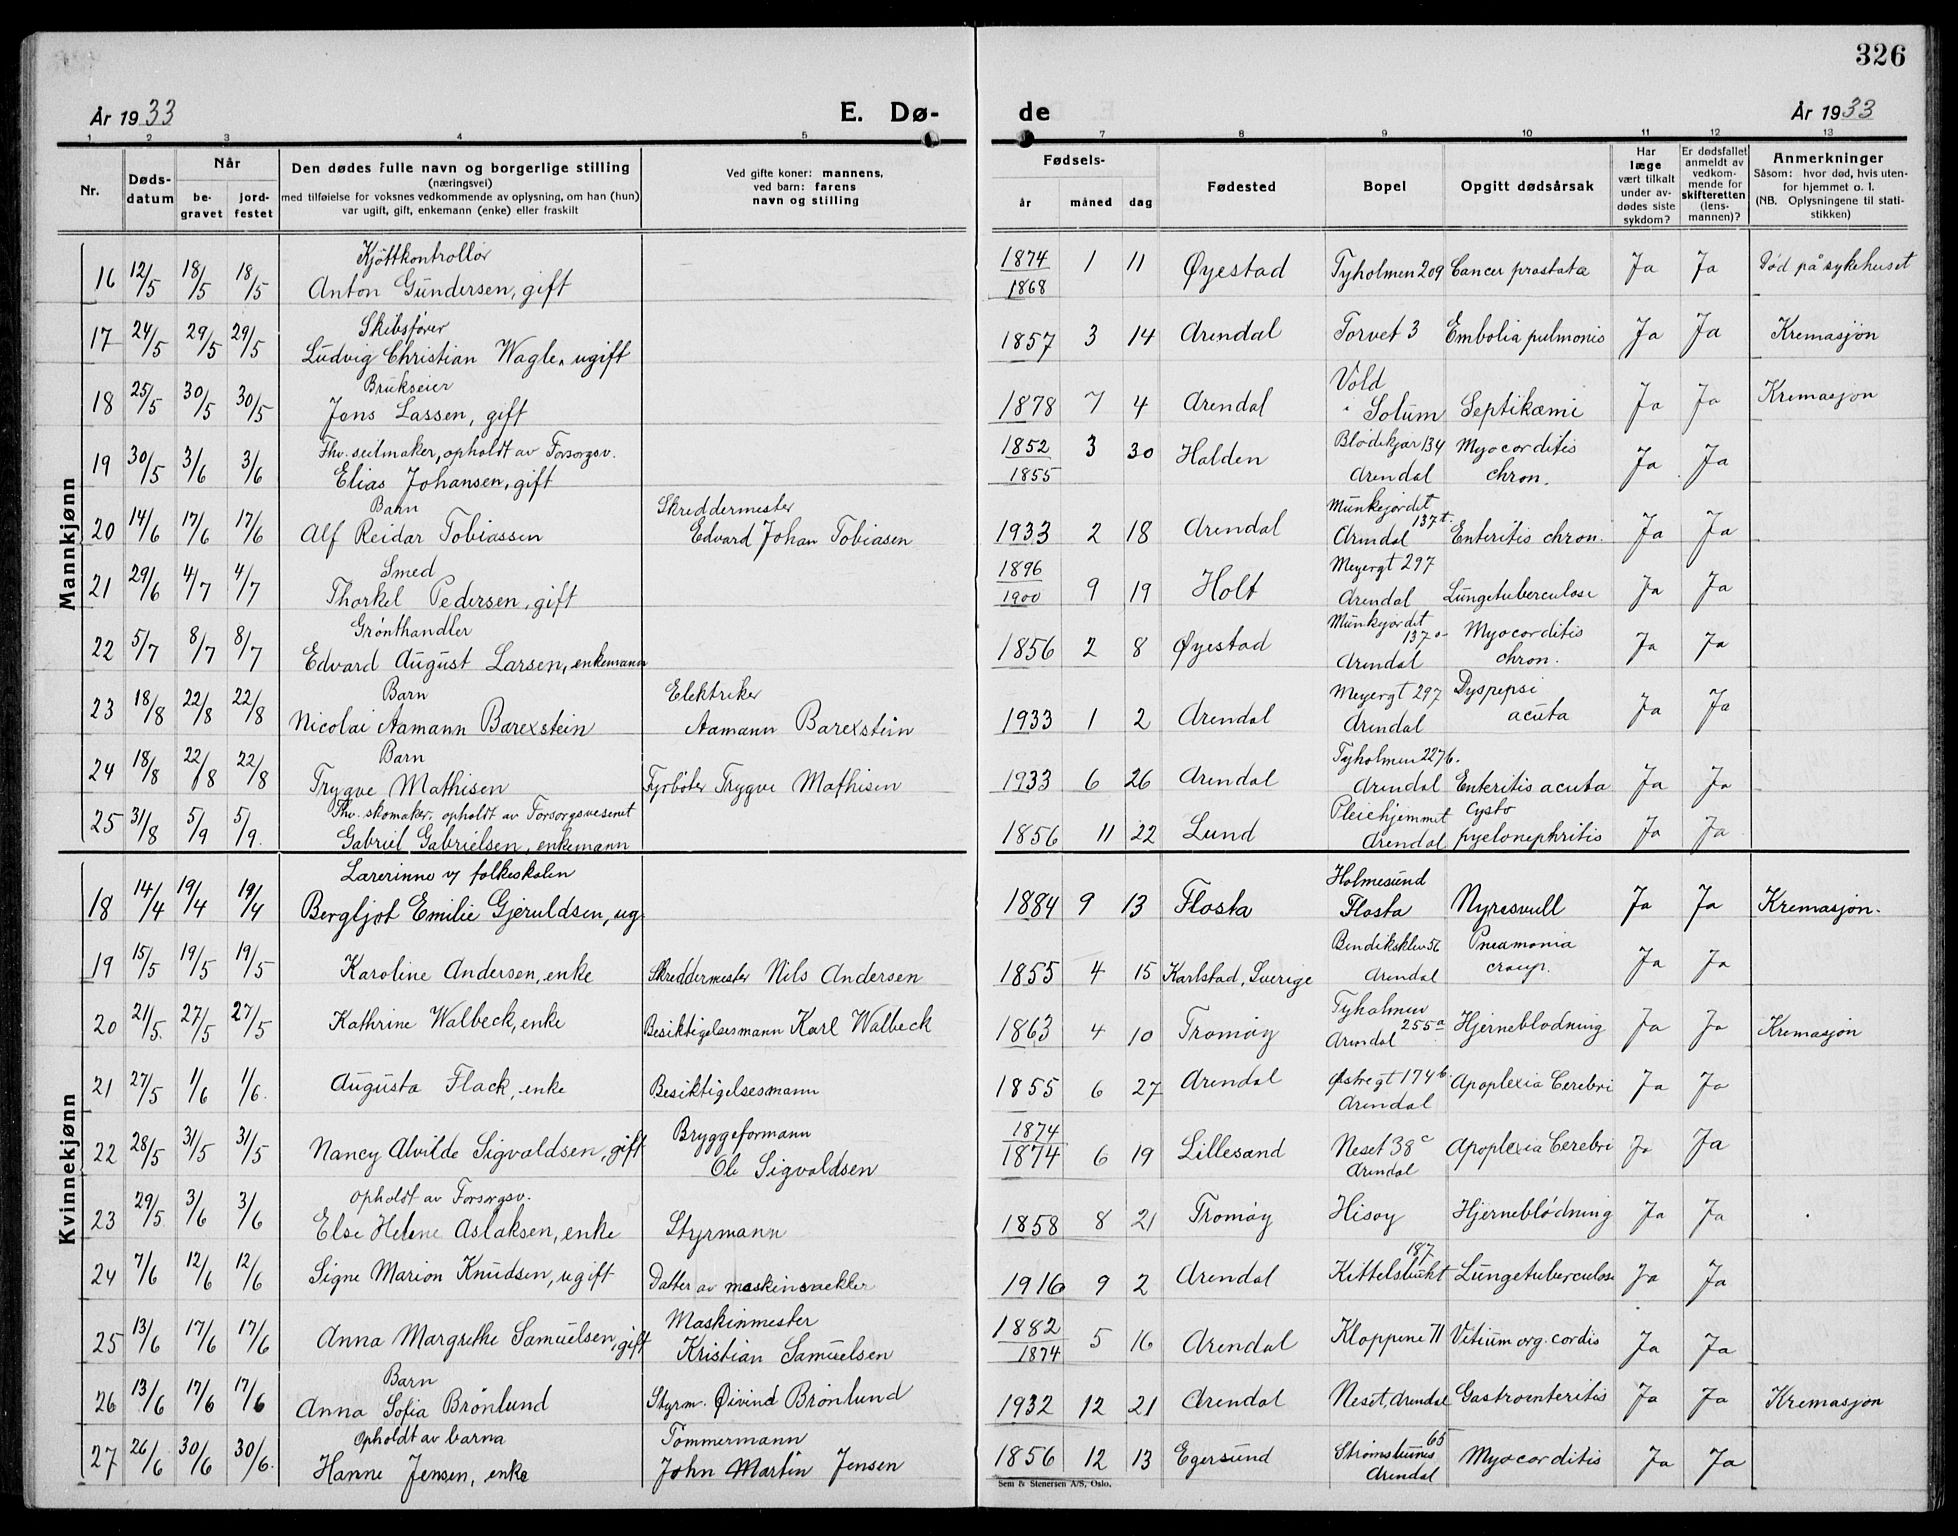 326
År 1933 E. Dø-
de År 1933
1 2 3 4 5
7 8 9 10 11 12 13
Nr.
Døds-
datum
Når
be-
gravet
jord-
festet
Den dødes fulle navn og borgerlige stilling
(næringsvei)
med tilføielse for voksnes vedkommende av oplysning, om han (hun)
var ugift, gift, enkemann (enke) eller fraskilt
Ved gifte koner: mannens,
ved barn: farens
navn og stilling
Fødsels-
år måned dag
Fødested
Bopel
Opgitt dødsårsak
Har
læge
vært tilkalt
under av-
dødes siste
sykdom?
Er dødsfallet
anmeldt av
vedkom-
mende for
skifteretten
(lens-
mannen)?
Anmerkninger
Såsom: hvor død, hvis uten-
for hjemmet o. l.
(NB. Oplysningene til stati-
stikken)
Mannkjønn
Kjøttkontrollør
16 12/5 18/5 18/5 Anton Gundersen, gift 1874 1868 1 11 Øyestad Tyholmen 209 Cancer prostata Ja Ja Død på sykehuset
Skibsfører
17 24/5 29/5 29/5 Ludvig Christian Wagle, ugift 1857 3 14 Arendal Torvet 3 Embolia pulmonis Ja Ja Kremasjon
Brukseier
18 25/5 30/5 30/5 Jens Lassen, gift 1878 7 4 Arendal Vold i Solum Septikæmi Ja Ja Kremasjon
Fhv. seilmaker, opholdt av Forsorgsv.
19 30/5 3/6 3/6 Elias Johansen, gift 1852 1855 3 30 Halden Blødekjær 134 Arendal Myocorditis chron. Ja Ja
Barn Skreddermester
20 14/6 17/6 17/6 Alf Reidar Tobiassen Edvard Johan Tobiasen 1933 2 18 Arendal Munkejordet 137t. Arendal Enteritis chron. Ja Ja
Smed
21 29/6 4/7 4/7 Thorkel Pedersen, gift 1896 1900 9 19 Holt Meyergt 297 Arendal Lungetuberculose Ja Ja
Grønthandler
22 5/7 8/7 8/7 Edvard August Larsen, enkemann 1856 2 8 Øyestad Munkejordet 137o Arendal Myocorditis chron. Ja Ja
Barn Elektriker
23 18/8 22/8 22/8 Nicolai Aamann Barexstein Aamann Barexstein 1933 1 2 Arendal Meyergt 297 Arendal Dyspepsi acuta Ja Ja
Barn
24 18/8 22/8 22/8 Trygve Mathisen Fyrbøter Trygve Mathisen 1933 6 26 Arendal Tyholmen 227b. Arendal Enteritis acuta Ja Ja
Fhv. skomaker, opholdt av Forsorgsvesenet
25 31/8 5/9 5/9. Gabriel Gabrielsen, enkemann 1856 11 22 Lund Pleiehjemmet Arendal Cysto pyelonephritis Ja Ja
Kvinnekjønn
Lærerinne v/ folkeskolen
18 14/4 19/4 19/4 Bergljot Emilie Gjeruldsen, ug. 1884 9 13 Flosta Holmesund Flosta Nyresvull Ja Ja Kremasjon.
19 15/5 19/5 19/5 Karoline Andersen, enke Skreddermester Nils Andersen 1855 4 15 Karlstad, Sverige Bendiksklev 56 Arendal Pneamonia croup. Ja Ja
20 21/5. 27/5 27/5 Kathrine Walbeck, enke Besiktigelsesmann Karl Walbeck 1863 4 10 Tromøy Tyholmen 255a Arendal Hjerneblødning Ja Ja Kremasjon
21 27/5 1/6 1/6. Augusta Flack, enke Besiktigelsesmann 1855 6 27 Arendal Østregt 174b. Arendal Apoplexia Cerebri Ja Ja
Bryggeformann
22 28/5 31/5 31/5 Nancy Alvilde Sigvaldsen, gift Ole Sigvaldsen 1874 1874 6 19 Lillesand Neset 38c Arendal Apoplexia Cerebri Ja Ja
opholdt av Forsorgsv.
23 29/5. 3/6 3/6 Else Helene Aslaksen, enke Styrmann 1858 8 21 Tromøy Hisøy Hjerneblødning Ja Ja
24 7/6 12/6 12/6 Signe Marion Knudsen, ugift Datter av maskinsnekker 1916 9 2 Arendal Kittelsbukt 187 Lungetuberculose Ja Ja
Maskinmester
25 13/6 17/6 17/6 Anna Margrethe Samuelsen, gift Kristian Samuelsen 1882 1874 5 16 Arendal Kloppene 71 Vitium org. cordis Ja Ja
Barn
26 13/6 17/6 17/6 Anna Sofia Brønlund Styrm. Øivind Brønlund 1932 12 21 Arendal Neset, Arendal Gastroenteritis Ja Ja Kremasjon
Opholdt av barna Tømmermann
27 26/6 30/6 30/6. Hanne Jensen, enke John Martin Jensen 1856 12 13 Egersund Strømsbunes 65 Arendal Myocorditis Ja Ja
Sem & Stenersen A/S, Oslo.